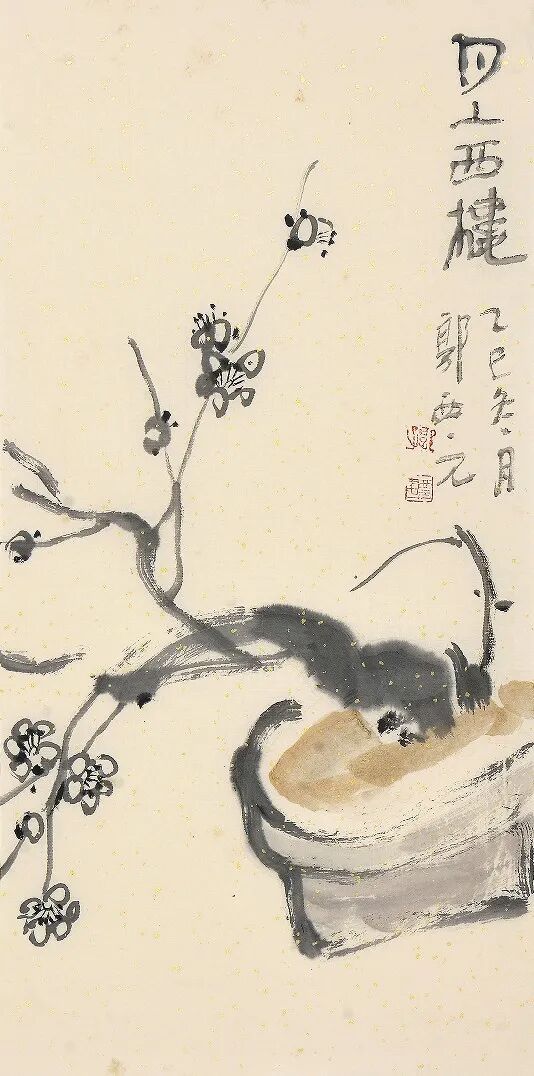 月上西樓
乙巳冬月
郭西元